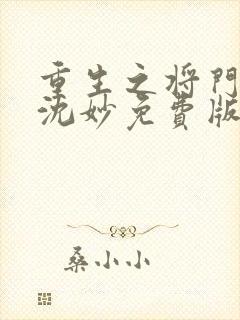 重生之将門
沈妙免費版
桑小小